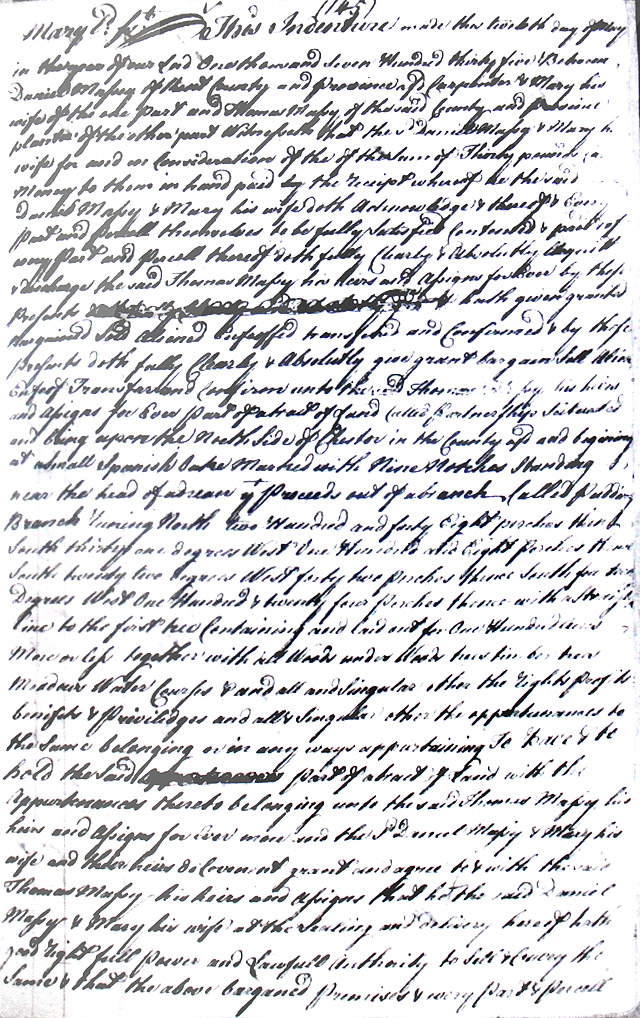 (145)
Maryld. sct This Indenture made this twelth day of May
in the year of our Lord One thousand Seven Hundred thirty five Between
Daniel Massy of Kent County and Province afsd Carpenter & Mary his
wife of the one part and Thomas Massy of the said County and Province
planter of the other part Witnesseth that the sd Daniel Massy & Mary h
wife for and in Consideration of the of the Sum of Thirty pounds
Money to them in hand paid by the receipt whereof he the said
Daniel Massy & Mary his wife doth Acknowledge & thereof & Every
part and parcell themselves to be fully Satisfied Contented & paid & of
every Part and Parcell thereof doth fully Clearly & Absolutely Acquitt
& Discharge the said Thomas Massy his heirs and Assigns for Ever by these
Presents hath given granted
bargained Sold Aliened Enfeoffed transferred and Confirmed & by these
presents doth fully Clearly & Absolutely give grant bargain Sell Alien
Enfeof Transfer and Confirm unto the said Thomas Massy his heirs
and Assigns for Ever Part of a tract of Land Called Partnership Situated
and being upon the North Side of Chester in the County afsd and begining
at a small Spanish Oake Marked with Nine Notches Standing
near the head of a drean yt Proceeds out of a branch Called Pudding
Branch Runing North two Hundred and forty Eight perches then
South thirty one degrees West One Hundred and Eight Perches thence
South twenty two degrees West forty two perches thence South
Degrees West One Hundred & twenty four Perches thence with a Straight
line to the first tree Containing and laid out for One Hundred acres
More or less together with all Woods under Woods trees timber trees
Meadows Water Courses & and all and Singular other the rights profits
benifits & Priviledges and all & Singular other the appurtenances to
the same belonging or in any ways appurtaining To Have & to
hold the said part of a tract of Land with the
Appurtenances thereto belonging unto the said Thomas Massy his
heirs and Assigns for Ever more and the sd Daniel Massy & Mary his
wife and their heirs do Covenant grant and agree to & with the said
Thomas Massy his heirs and Assigns that he the said Daniel
Massy & Mary his wife at the Sealing and delivery hereof hath
good right full Power and Lawfull Authority to Sell & Convey the
Same & that the above barganed Premises & every Part & Parcell